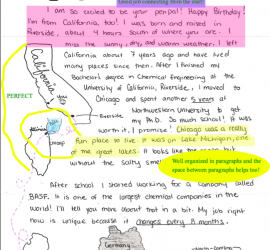 Good job connecting from the start!
I am so excited to be your penpal! Happy Birthday!
I'm from California, too! I was born and raised in
Riverside, about 4 hours south of where you are. I
miss the sunny, dry, and warm weather. I left
California about 7 years ago and have lived
many places since then. After I finished my
Bachelors degree in Chemical Engineering at the
University of California, Riverside, I moved to
Chicago and spent another 5 years at
Northwestern University to get
my Ph.D. So much school! It was
worth it, I promise! Chicago was a really
fun place to live. It was on Lake Michigan, one
of the great lakes. It looks like the ocean but
without the salty smell
PERFECT
California
Riverside
Chicago
Well organized in paragraphs and the
space between paragraphs helps too!
After school I started working for a company called
BASF. It is one of the largest chemical companies in the
world! I'll tell you more about that in a bit. My job right
now is unique because it changes every 8 months.
Germany